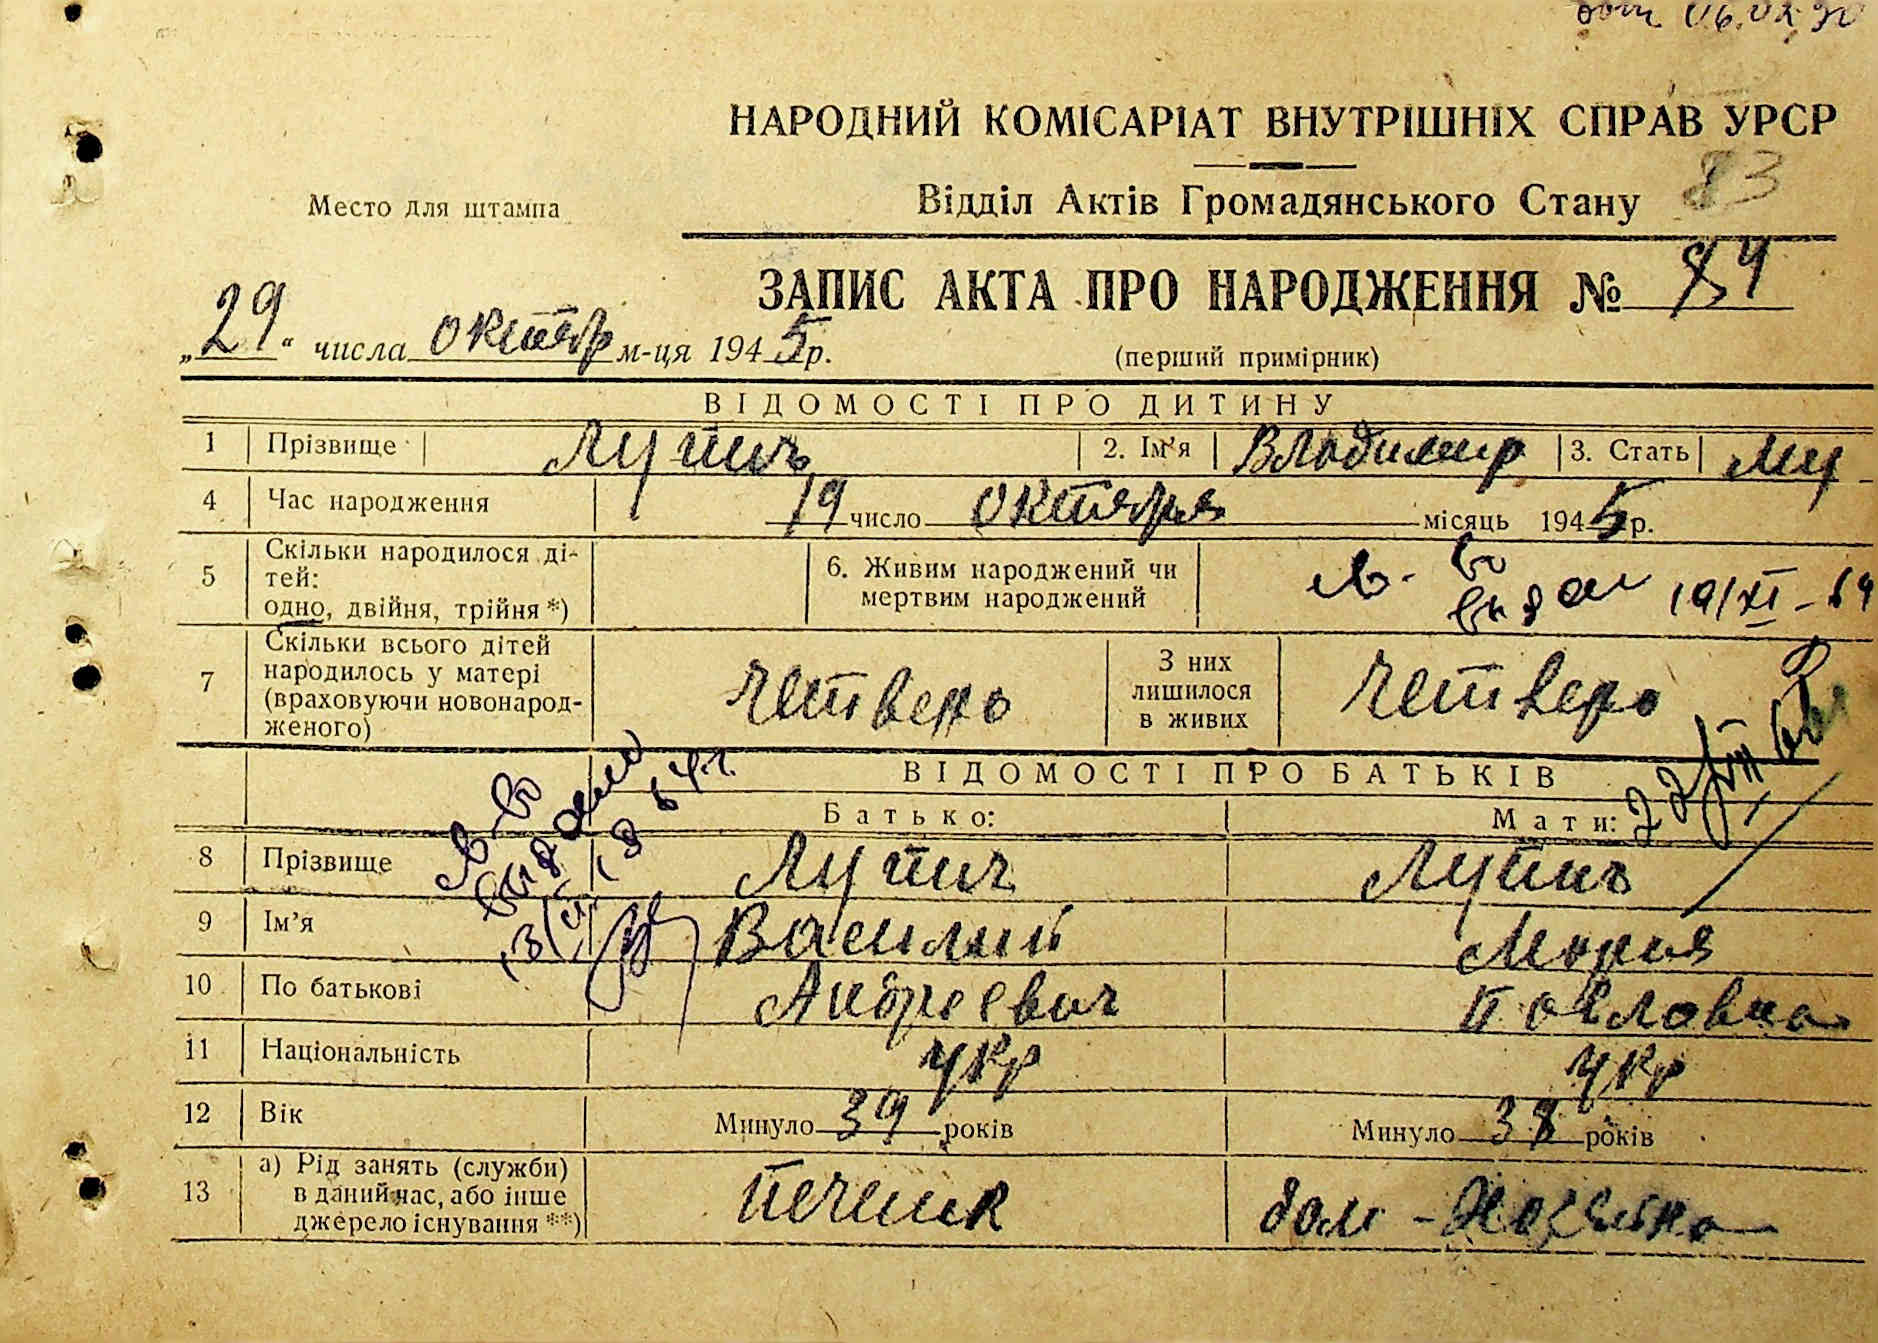 06.02.90
НАРОДНИЙ КОМІСАРІАТ ВНУТРІШНІХ СПРАВ УРСР
83
Место для штампа
Відділ Актів Громадянського Стану
ЗАПИС АКТА ПРО НАРОДЖЕННЯ № 84
„29“ числа октябр м-ця 1945р.
(перший примірник)
ВІДОМОСТІ ПРО ДИТИНУ
1 Прізвище Лупич 2. Ім’я Владимир 3. Стать Му
4 Час народження 19 число октября місяць 1945 р.
5 Скільки народилося ді-
тей:
одно, двійня, трійня *)
6. Живим народжений чи
мертвим народжений
19/XI-64
7 Скільки всього дітей
народилось у матері
(враховуючи новонарод-
женого)
четверо
З них
лишилося
в живих
четверо
ВІДОМОСТІ ПРО БАТЬКІВ
Батько: Мати:
8 Прізвище Лупич Лупич
9 Ім’я Василий Мария
10 По батькові Андреевич Павловна
11 Національність укр укр
12 Вік Минуло 39 років Минуло 38 років
13 а) Рід занять (служби)
в даний час, або інше
джерело існування **)
печник дом-хозяйка